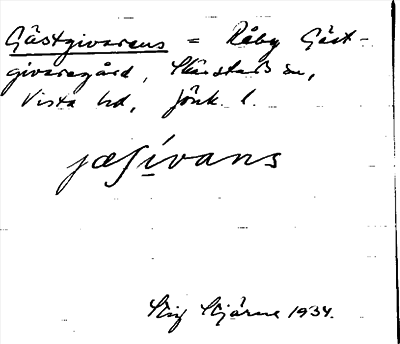 Gästgivarens = Råby Gäst-
givaregård, Skärstads sn,
Vista hd, Jönk. l.
jæʃivans
Stig Stjärne 1934.